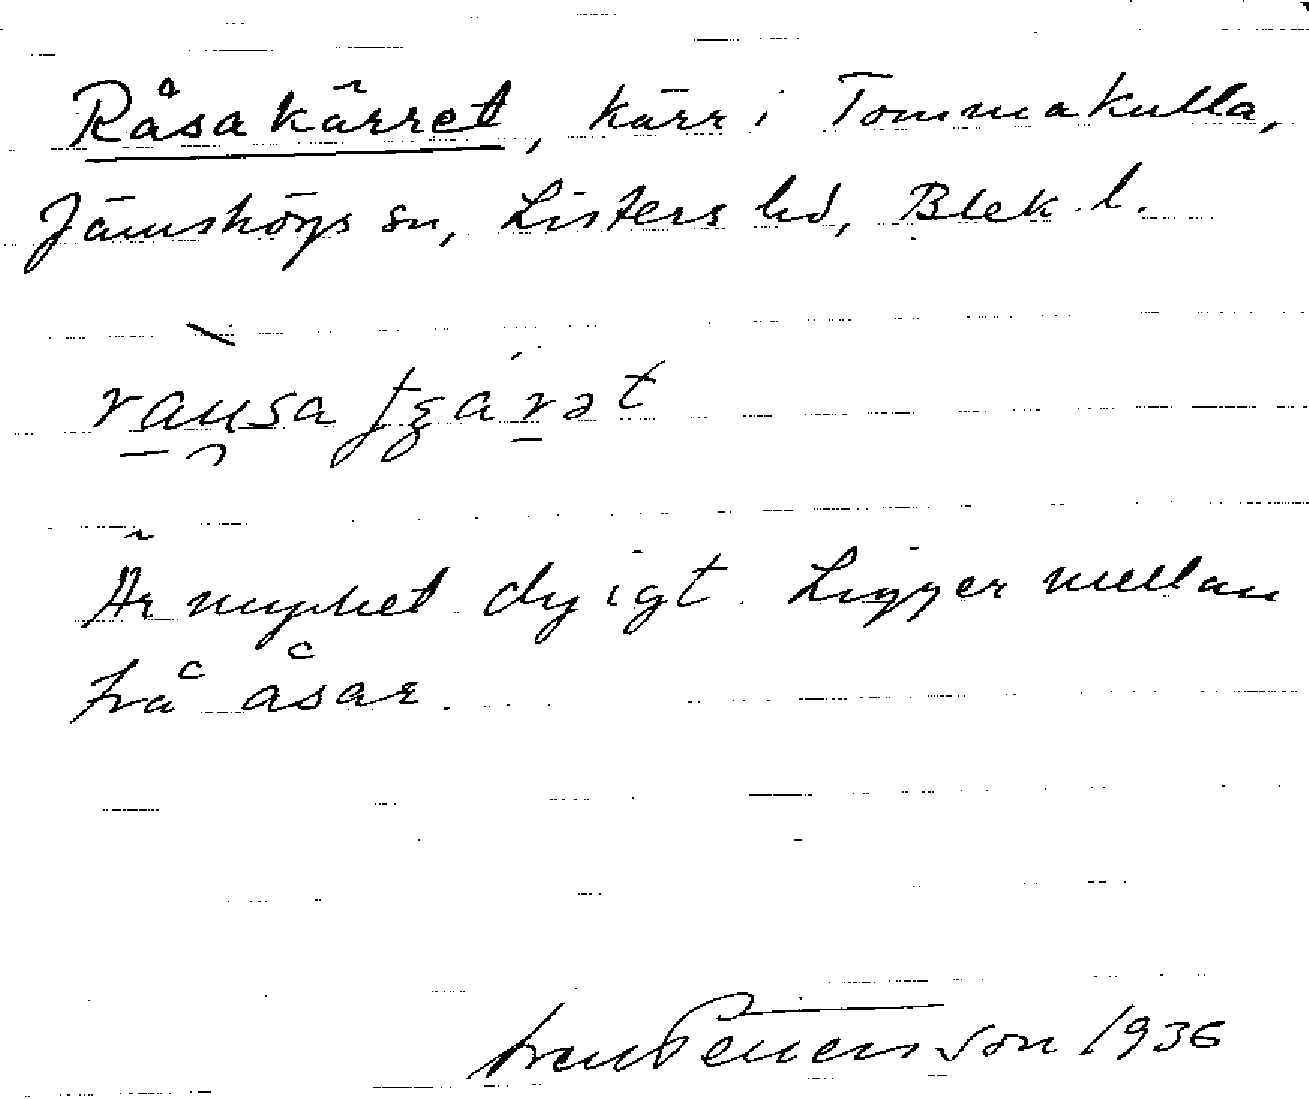 Råsakärret, kärr i Tommakulla,
Jämshögs sn, Listers hd, Blek. l.
Är mycket dyigt. Ligger mellan
två åsar.
Pettersson 1936